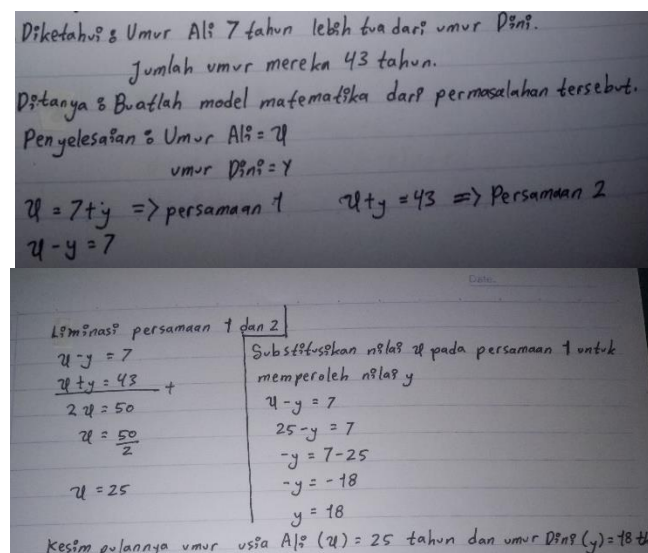 Diketahui : Umur Ali 7 tahun lebih tua dari umur Dini.
Jumlah umur mereka 43 tahun.
Ditanya : Buatlah model matematika dari permasalahan tersebut.
Penyelesaian : Umur Ali = x
umur Dini = y
x = 7+y => persamaan 1 x+y = 43 => Persamaan 2
x - y = 7
Date
Liminasi persamaan 1 dan 2
x - y = 7
x + y = 43 +
2x = 50
x = 50/2
x = 25
Substitusikan nilai x pada persamaan 1 untuk
memperoleh nilai y
x - y = 7
25 - y = 7
-y = 7 - 25
-y = - 18
y = 18
Kesimpulannya umur usia Ali (x) = 25 tahun dan umur Dini (y) = 18 th